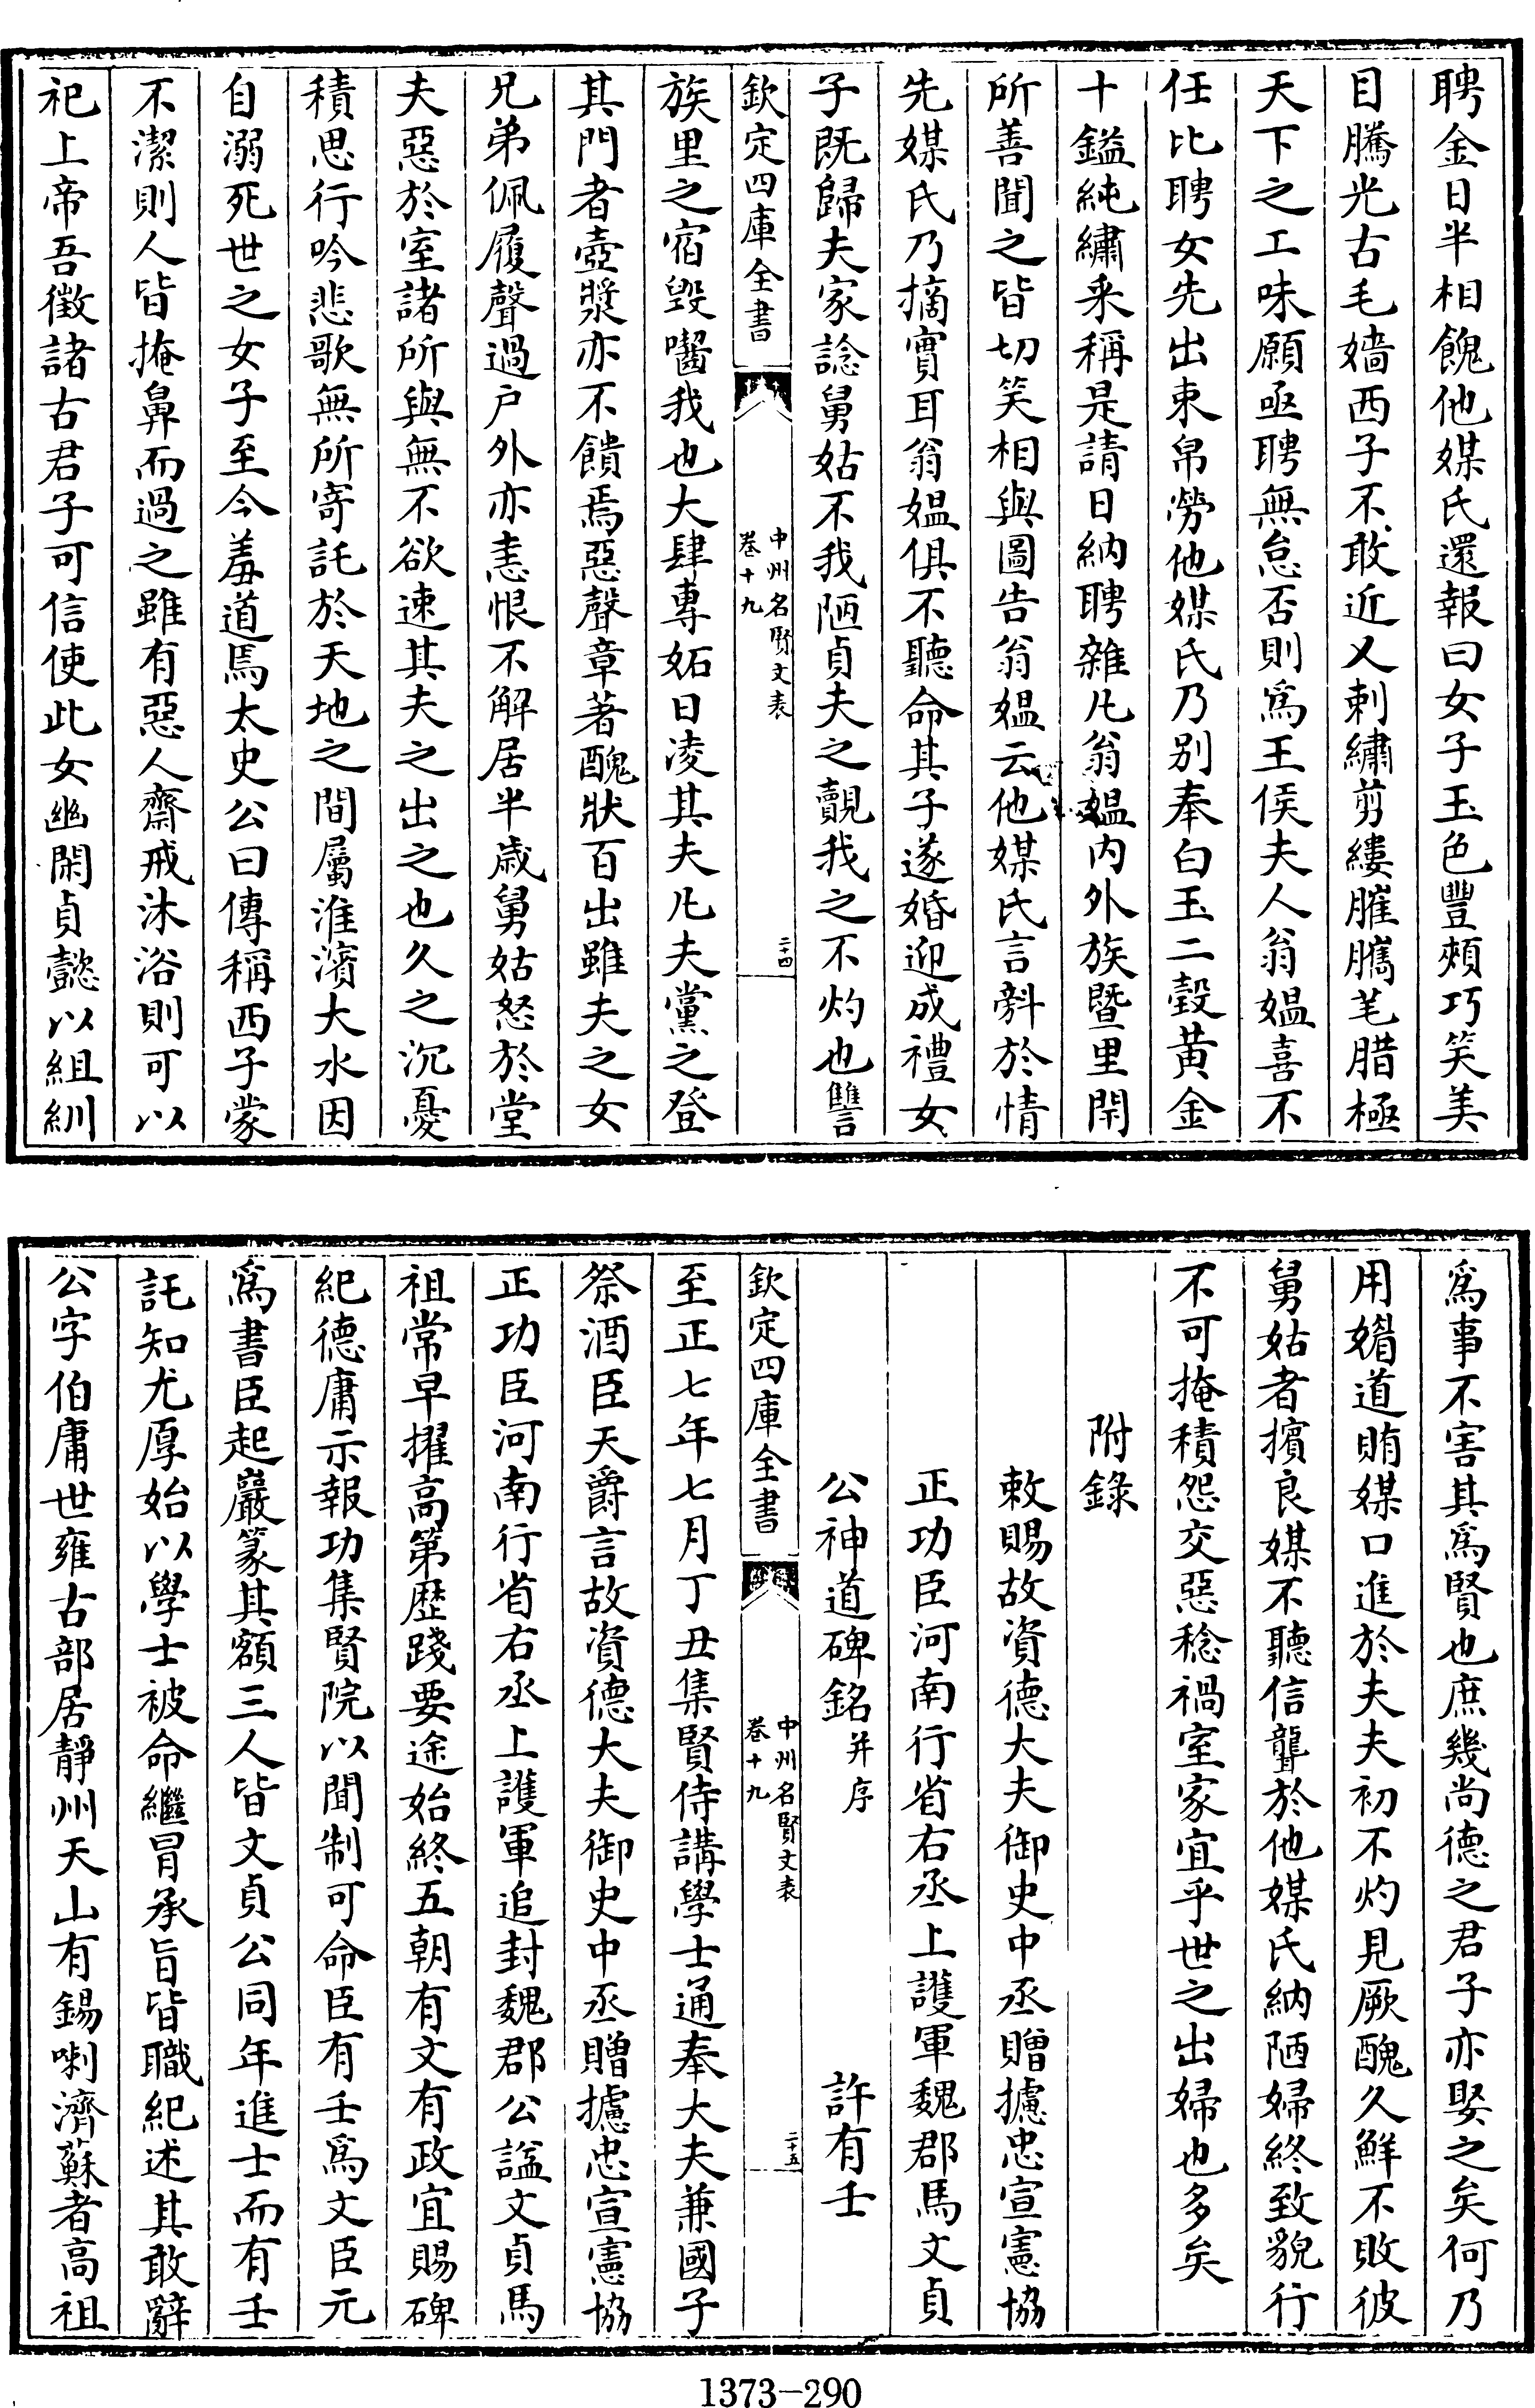 聘金日半相餽他媒氏還報曰女子玉色豐頰巧笑美
目騰光古毛嬙西子不敢近又刺繡剪縷臛臇芼腊極
天下之工味願亟聘無怠否則爲王侯夫人翁媪喜不
任比聘女先出束帛勞他媒氏乃别奉白玉二瑴黄金
十鎰純繡来稱是請日納聘雜凡翁媪内外族暨里閈
所善聞之皆切笑相與圖告翁媪云他媒氏言斜於情
先媒氏乃摘實耳翁媪俱不聽命其子遂婚迎成禮女
子既歸夫家諗舅姑不我陋貞夫之覿我之不灼也讐
欽定四庫全書
中州名賢文表
卷十九
二十四
族里之宿毁嚙我也大肆專妬日凌其夫凡夫黨之登
其門者壺漿亦不饋焉惡聲章著醜狀百出雖夫之女
兄弟佩履聲過户外亦恚恨不解居半歲舅姑怒於堂
夫惡於室諸所與無不欲速其夫之出之也久之沉憂
積思行吟悲歌無所寄託於天地之間屬淮濱大水因
自溺死世之女子至今羞道焉太史公曰傳稱西子蒙
不潔則人皆掩鼻而過之雖有惡人齋戒沐浴則可以
祀上帝吾徵諸古君子可信使此女幽閑貞懿以組紃
爲事不害其爲賢也庶幾尚德之君子亦娶之矣何乃
用媢道賄媒口進於夫夫初不灼見厥醜久鮮不敗彼
舅姑者擯良媒不聽信讋於他媒氏納陋婦終致貌行
不可掩積怨交惡稔禍室家宜乎世之出婦也多矣
附錄
敕賜故資德大夫御史中丞贈攄忠宣憲協
正功臣河南行省右丞上護軍魏郡馬文貞
公神道碑銘并序
許有壬
欽定四庫全書
中州名賢文表
卷十九
二十五
至正七年七月丁丑集賢侍講學士通奉大夫兼國子
祭酒臣天爵言故資德大夫御史中丞贈攄忠宣憲協
正功臣河南行省右丞上護軍追封魏郡公諡文貞馬
祖常早擢高第歷踐要途始終五朝有文有政宜賜碑
紀德庸示報功集賢院以聞制可命臣有壬爲文臣元
爲書臣起巖篆其額三人皆文貞公同年進士而有壬
託知尤厚始以學士被命繼冐承旨皆職紀述其敢辭
公字伯庸世雍古部居靜州天山有錫喇濟蘇者高祖
1373-290